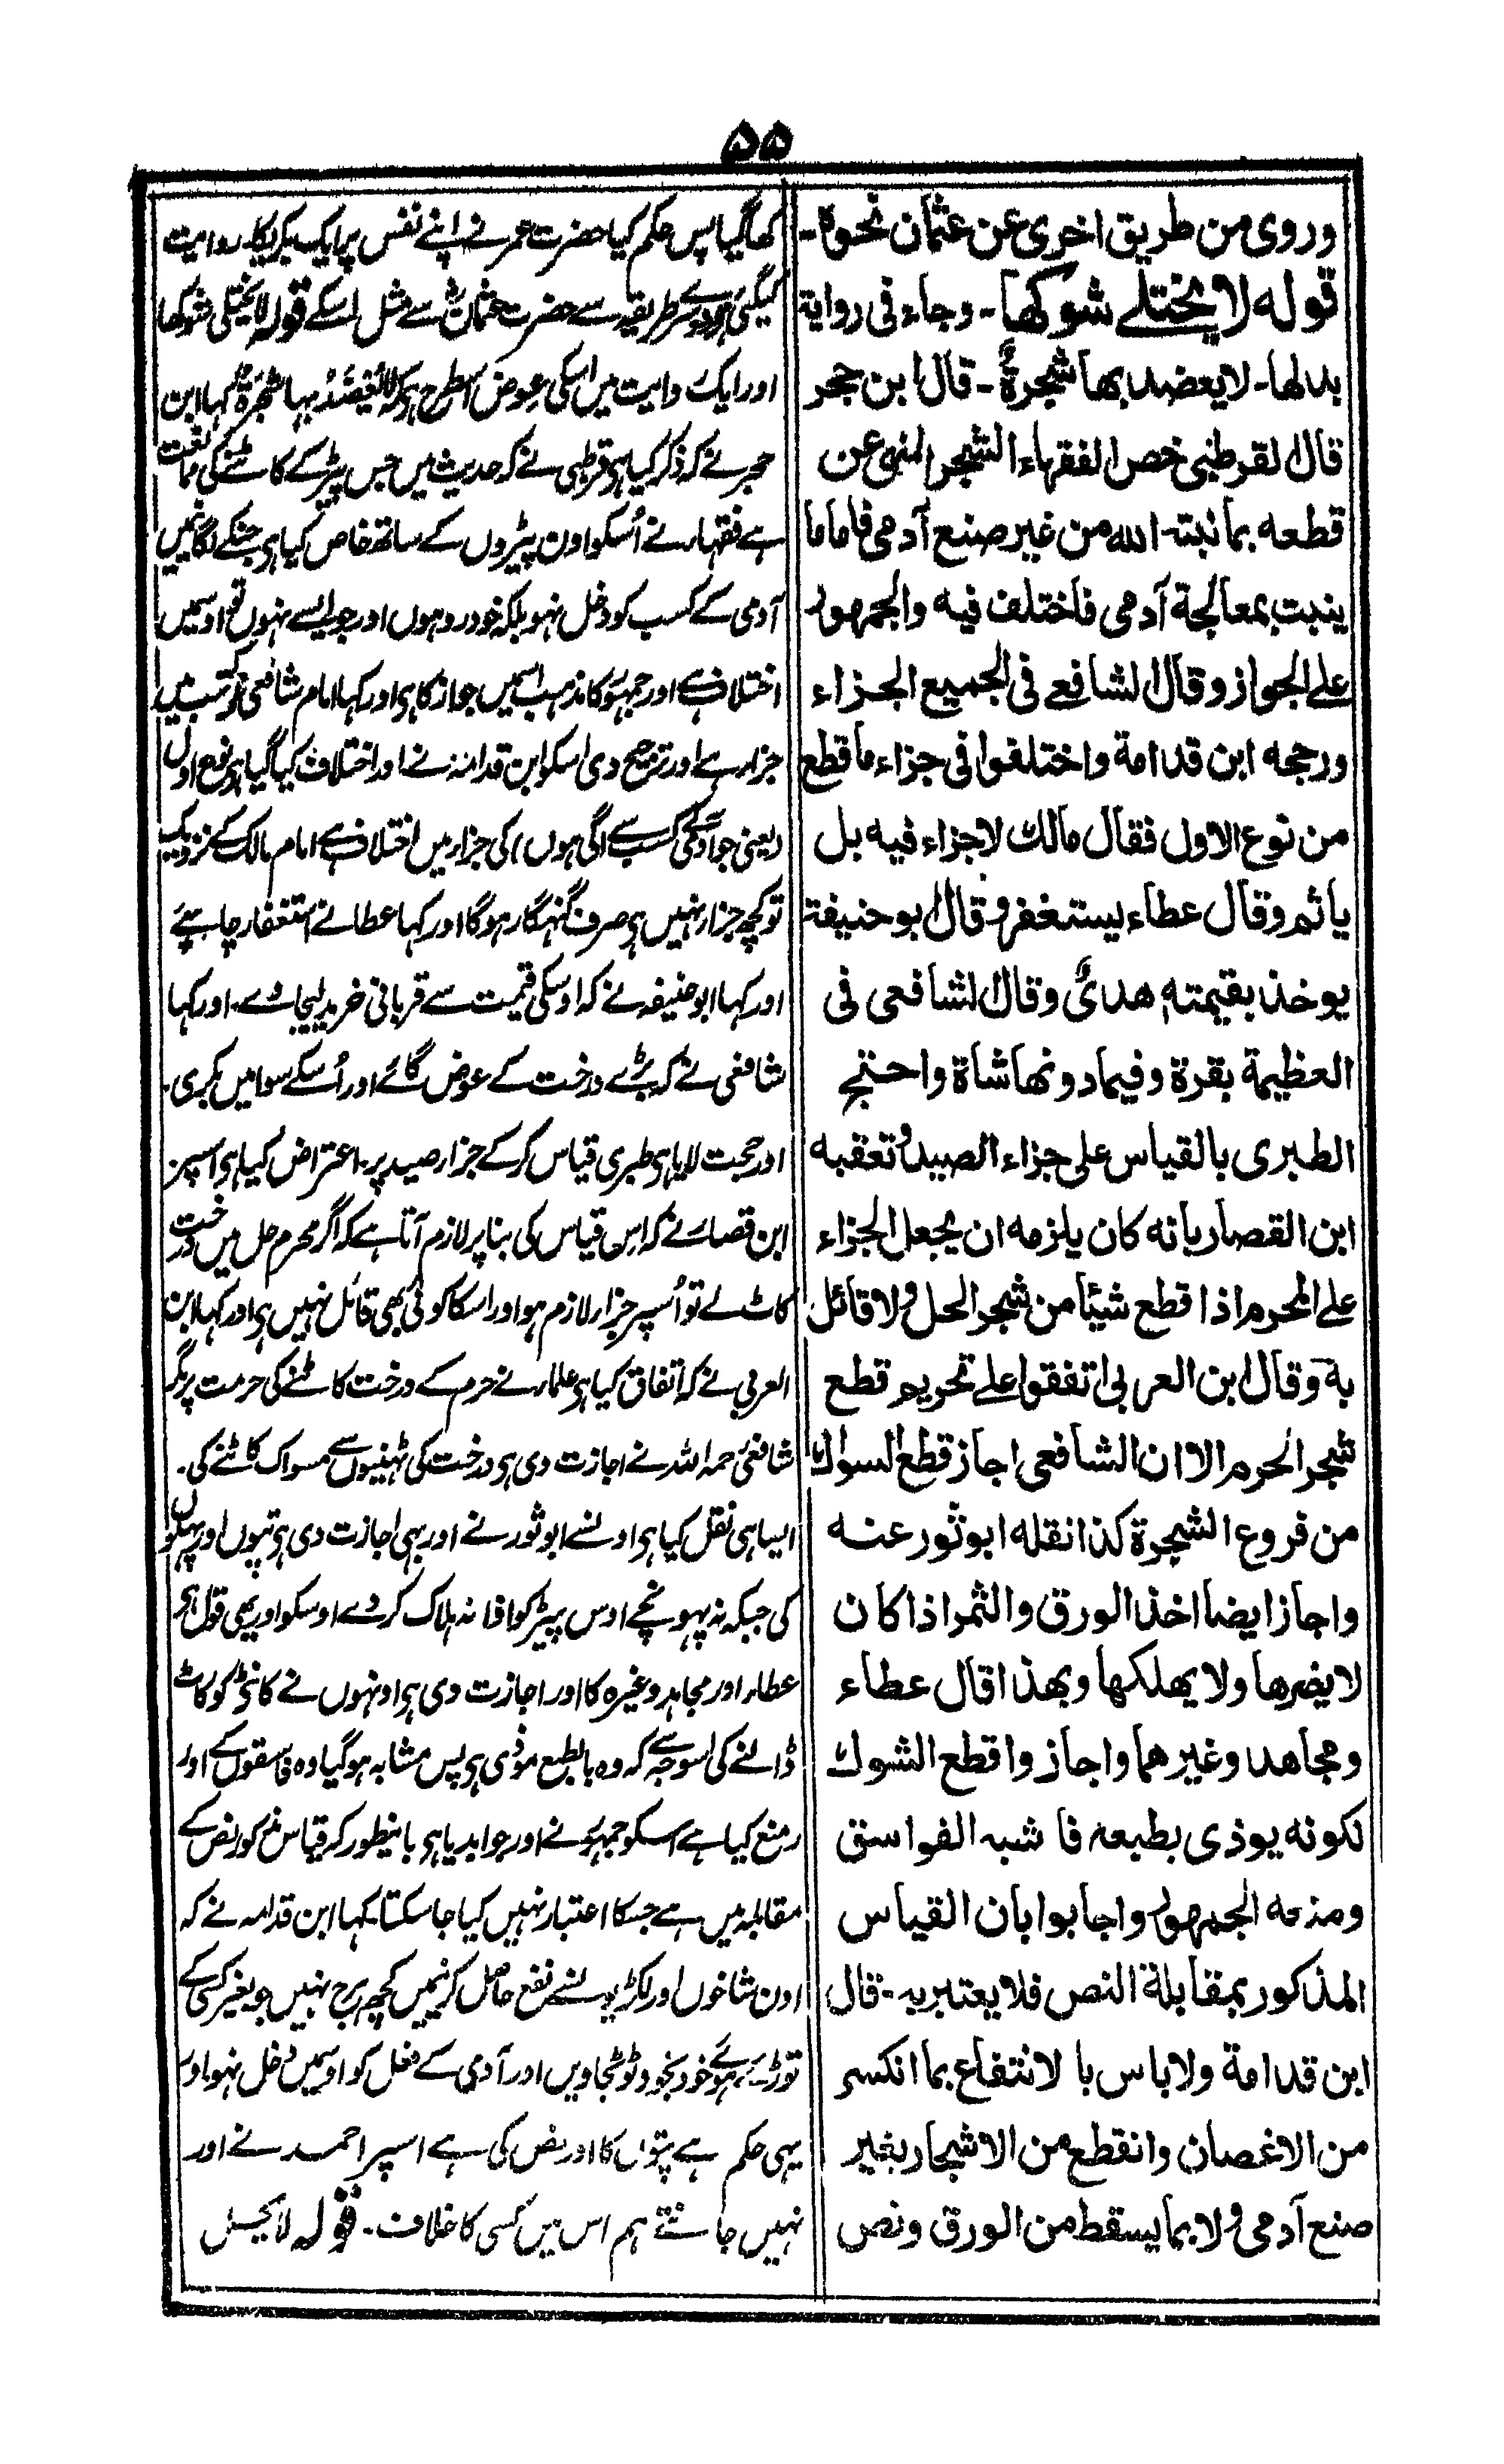 ۵۵
وروى من طريق اخرى عن عثمان نحوه۔
قوله لا يختلے شوكها۔ وجاء فى رواية
بدلها۔ لا يعضد بها شجرةٌ۔ قال ابن حجر
قال القرطبى خص الفقهاء الشجر المنهى عن
قطعه بما نبته الله من غير صنع آدمى فاما ما
ينبت بمعالجة آدمى فاختلف فيه والجمهور
على الجواز وقال الشافعے فى الجميع الجزاء
ورجحه ابن قدامة واختلفوا فى جزاء ما قطع
من نوع الاول فقال مالك لا جزاء فيه بل
ياثم وقال عطاء يستغفر وقال ابو حنيفة
يوخذ بقيمته هدىٌ وقال الشافعى فى
العظيمة بقرة وفيما دونها شاة واحتج
الطبرى بالقياس على جزاء الصيد وتعقبه
ابن القصار بانه كان يلزمه ان يجعل الجزاء
على المحرم اذا قطع شيئا من شجر الحل ولا قائل
به وقال ابن العربى اتفقوا على تحريم قطع
شجر الحرم الا ان الشافعى اجاز قطع السواك
من فروع الشجرة كذا نقله ابو ثور عنه
واجاز ايضا اخذ الورق والثمر اذا كان
لا يضرها ولا يهلكها وبهذا قال عطاء
ومجاهد وغيرهما واجازوا قطع الشوك
لكونه يوذى بطبعه فاشبه الفواسق
ومنعه الجمهور واجابوا بان القياس
المذكور بمقابلة النص فلا يعتبر به۔ قال
ابن قدامة ولا باس بالانتفاع بما انكسر
من الاغصان وانقطع من الاشجار بغير
صنع آدمى ولا بما يسقط من الورق ونص
کھا گیا پس حکم کیا حضرت عمر نے اپنے نفس پر ایک بکریکا۔ روایت
کیگئی ہے دوسرے طریقہ سے حضرت عثمان سے مثل اسکے قولہ لا یختلی شوکہا
اور ایک روایت میں اسکی عوض اسطرح ہے کہ لا یعضد بہا شجرۃٌ کہا ابن
حجر نے کہ ذکر کیا ہی قرطبی نے کہ حدیث میں جس پیڑ کے کاٹنے کی ممانعت
ہے فقہاء نے اُسکو اون پیڑوں کے ساتھ خاص کیا ہی جنکے لگانمیں
آدمی کے کسب کو دخل نہو بلکہ خودرو ہوں اور جو ایسے نہوں تو اوسمیں
اختلاف ہے اور جمہور کا مذہب اسمیں جواز کا ہی اور کہا امام شافعی نے کہ سب میں
جزا ہے اور ترجیح دی اسکو ابن قدامہ نے اور اختلاف کیا گیا ہی نوع اول
(یعنی جو آدمی کے کسب سے اگی ہوں) کی جزا میں اختلاف ہے امام مالک کے نزدیک
تو کچھ جزا نہیں ہی صرف گنہگار ہوگا اور کہا عطا نے استغفار چاہیے
اور کہا ابو حنیفہ نے کہ اوسکی قیمت سے قربانی خرید لیجاوے۔ اور کہا
شافعی نے کہ بڑے درخت کے عوض گائے اور اُسکے سوا میں بکری۔
اور حجت لایا ہی طبری قیاس کر کے جزار صید پر۔ اعتراض کیا ہی اسپر
ابن قصار نے کہ اس قیاس کی بنا پر لازم آتا ہے کہ اگر محرم حل میں درخت
کاٹ لے تو اُسپر جزار لازم ہو اور اسکا کوئی بھی قائل نہیں ہی اور کہا ابن
العربی نے کہ اتفاق کیا ہی علماء نے حرم کے درخت کاٹنے کی حرمت پر مگر
شافعی رحمہ اللہ نے اجازت دی ہی درخت کی ٹہنیوں سے مسواک کاٹنے کی۔
ایسا ہی نقل کیا ہی اونسے ابو ثور نے اور یہی اجازت دی ہی پتوں اور پہلوں
کی جبکہ نہ پہونچے اوس پیڑ کو اور نہ ہلاک کر دے اوسکو اور یہی قول ہی
عطاء اور مجاہد وغیرہ کا اور اجازت دی ہی اونہوں نے کانٹو کو کاٹ
ڈالنے کی اسوجہ سے کہ وہ بالطبع موذی ہی پس مشابہ ہو گیا وہ فاسقوں کے اور
منع کیا ہے اسکو جمہور نے اور جواب دیا ہی باینطور کہ قیاس مذکور نص کے
مقابلہ میں ہے جسکا اعتبار نہیں کیا جا سکتا۔ کہا ابن قدامہ نے کہ
اون شاخوں اور لکڑیوں سے نفع حاصل کرنیمیں کچھ ہرج نہیں جو بغیر کسی کے
توڑے ہوئے خود بخود ٹوٹ جاویں اور آدمی کے فعل کو اوسمیں دخل نہو اور
یہی حکم ہے پتوں کا اور نص کی ہے اسپر احمد نے اور
نہیں جانتے ہم اس میں کسی کا خلاف۔ قولہ لا یحل